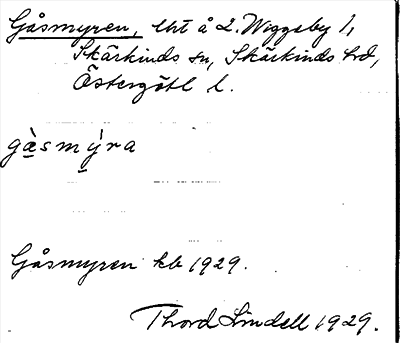 Gåsmyren, lht å L. Wiggeby 1,
Skärkinds sn, Skärkinds hd,
Östergötl l.
gàsmýra
Gåsmyren kb 1929.
Thord Lindell 1929.